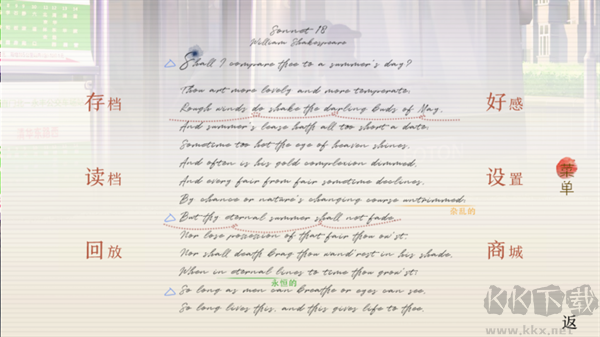 Sonnet 18
William Shakespeare
Shall I compare thee to a summer's day?
Thou art more lovely and more temperate.
Rough winds do shake the darling buds of May,
And summer's lease hath all too short a date.
Sometime too hot the eye of heaven shines,
And often is his gold complexion dimmed,
And every fair from fair sometime declines,
By chance or nature's changing course untrimmed.
杂乱的
But thy eternal summer shall not fade,
Nor lose possession of that fair thou ow'st,
Nor shall death brag thou wand'rest in his shade,
When in eternal lines to time thou grow'st:
永恒的
So long as men can breathe or eyes can see,
So long lives this, and this gives life to thee.
存档
读档
回放
好感
设置
商城
菜单
返
KK下载
www.kkx.net